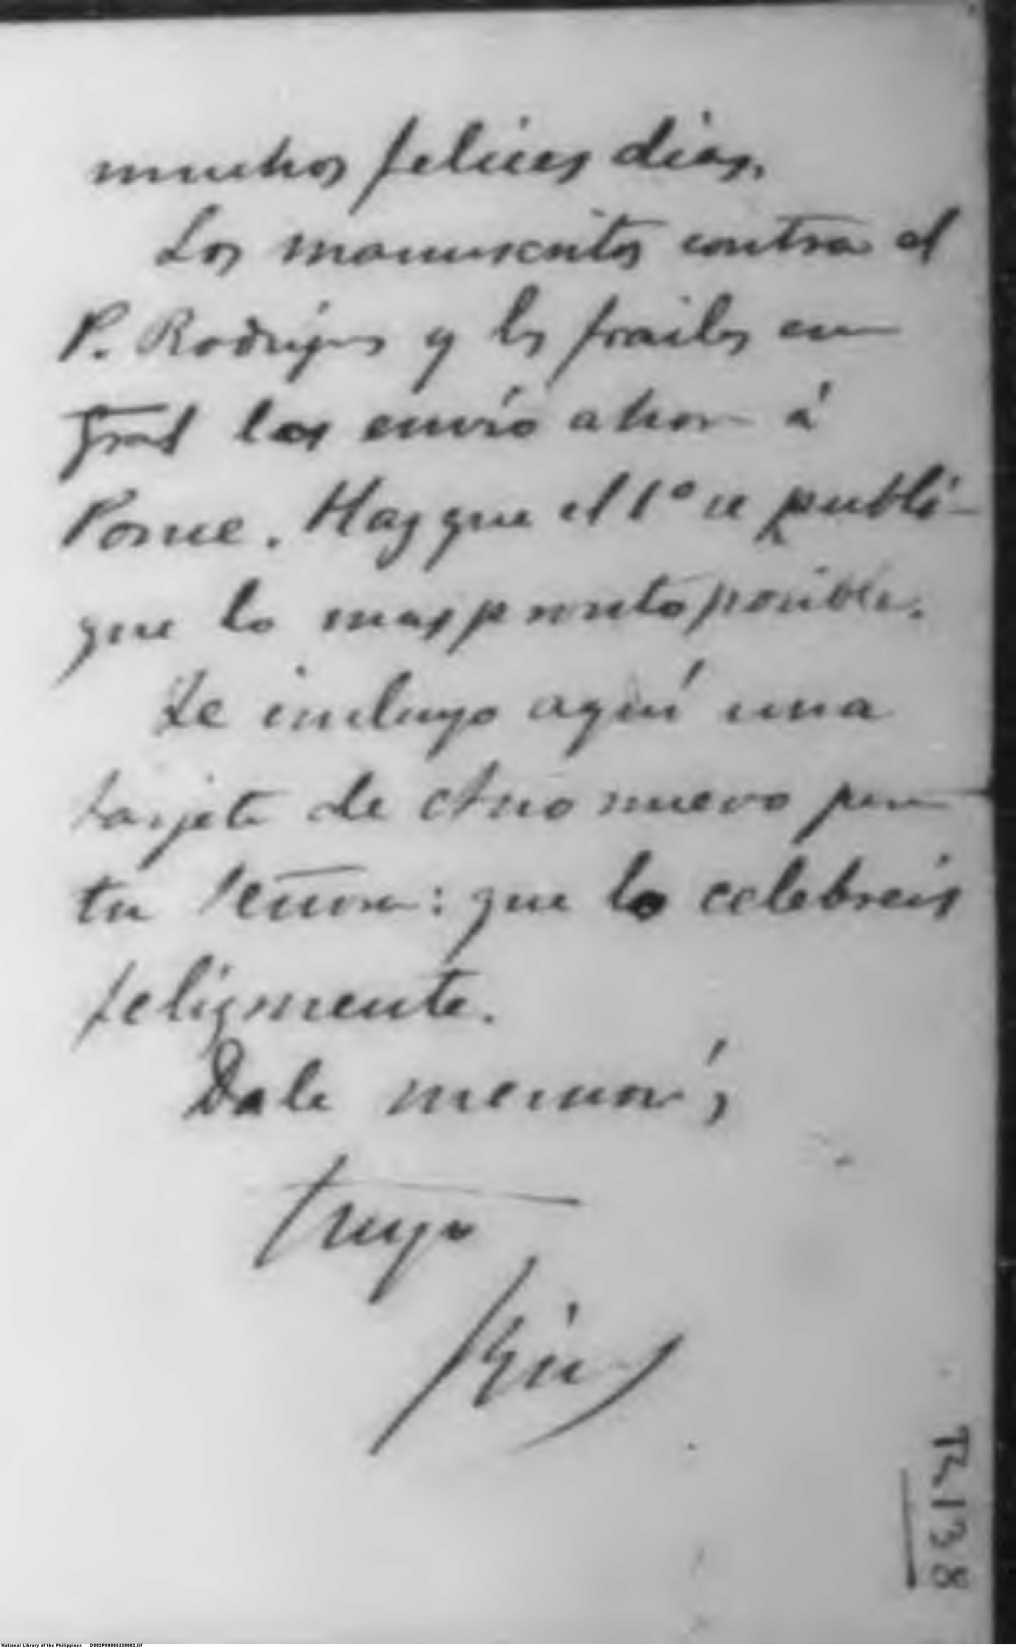 muchos felices dias.
Los manuscritos contra el
P. Rodriguez y los frailes en
gral los envío ahora á
Ponce. Haz que el 1º se publi-
que lo mas pronto posible.
Te incluyo aquí una
tarjeta de Año nuevo para
tu Señora: que lo celebreis
felizmente.
Dale memorias
Tuyo
Rizal
TR.138
National Library of the Philippines